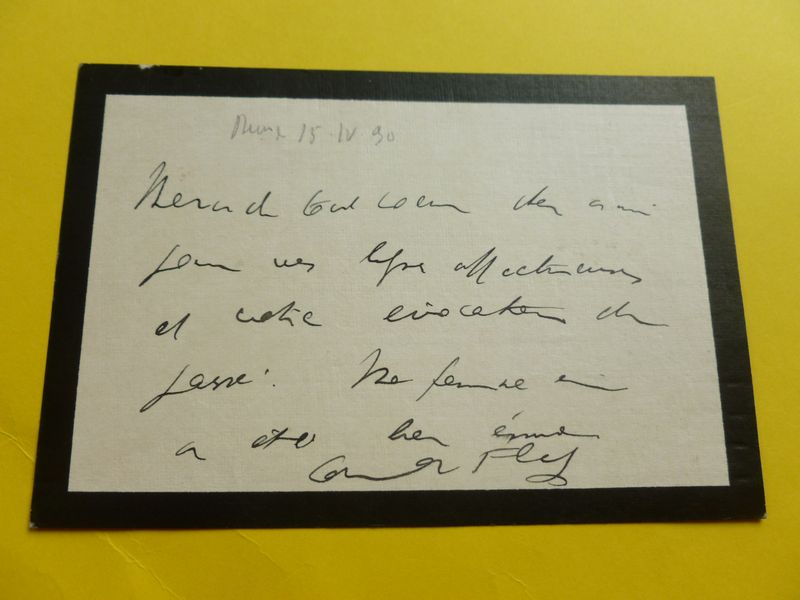 15 · IV 30
Merci de tout coeur cher ami
pour vos lignes affectueuses
et votre évocation du
passé. Ma femme en
a été bien émue